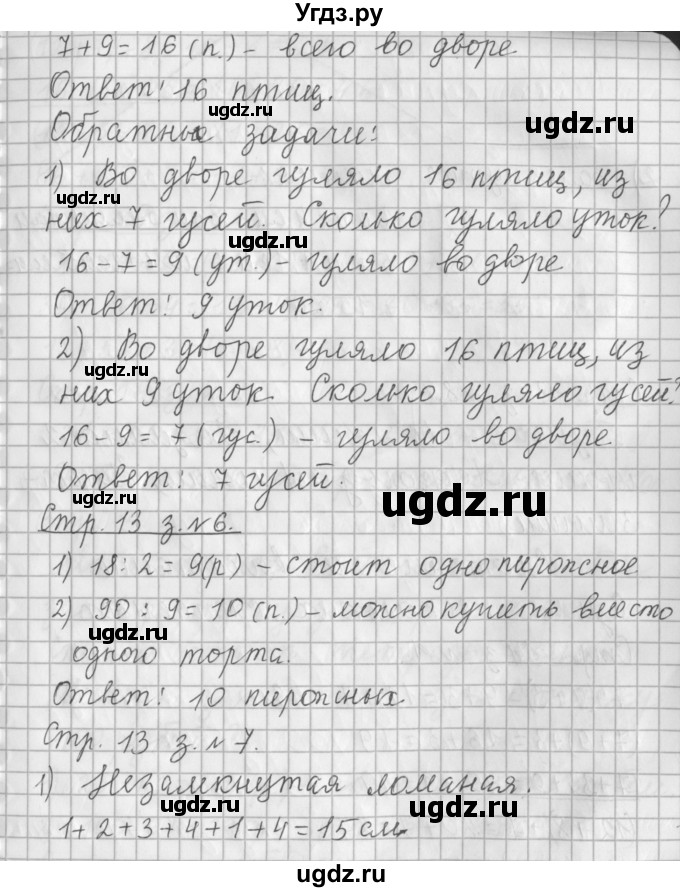 Угдз.ру
7+9=16 (п.) - всего во дворе
Ответ: 16 птиц.
ugdz.ru
ugdz.ru
Обратные задачи:
1) Во дворе гуляло 16 птиц, из
ugdz.ru
них 7 гусей. Сколько гуляло уток?
ugdz.ru
16-7=9 (ут.) - гуляло во дворе
Ответ: 9 уток.
2) Во дворе гуляло 16 птиц, из
ugdz.ru
них 9 уток. Сколько гуляло гусей?
16-9=7 (гус.) - гуляло во дворе
Ответ: 7 гусей.
ugdz.ru
ugdz.ru
Стр. 13 з. №6.
1) 18:2=9(р) - стоит одно пирожное
2) 90:9=10 (п.) - можно купить вместо
ugdz.ru
одного торта.
Ответ: 10 пирожных
ugdz.ru
Стр. 13 з. №7.
1) Незамкнутая ломаная.
ugdz.ru
1+2+3+4+1+4=15 см
ugdz.ru